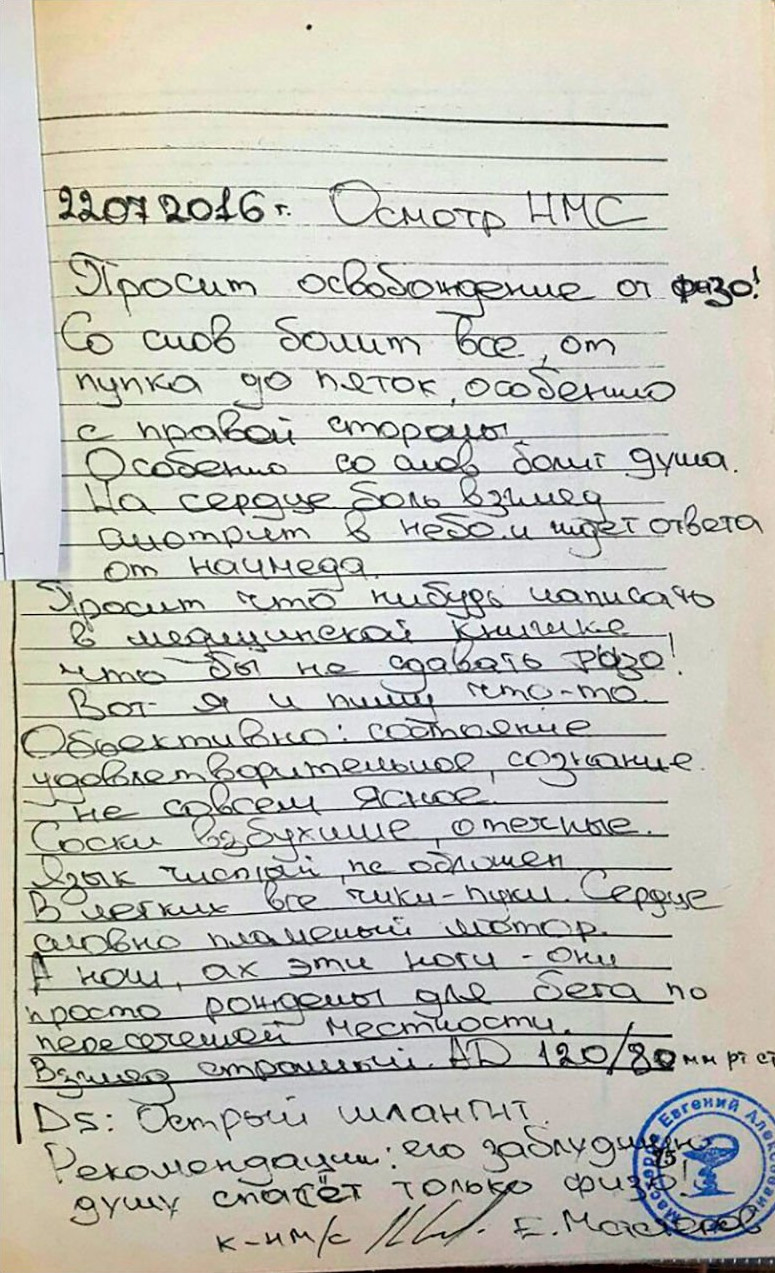 22072016г. Осмотр НМС
Просит освобождение от физо!
Со слов болит все, от
пупка до пяток, особенно
с правой стороны.
Особенно со слов болит душа.
На сердце боль взгляд
смотрит в небо и ждет ответа
от начмеда.
Просит что нибудь написать
в медицинской книжке
что бы не сдавать физо!
Вот я и пишу что-то.
Объективно: состояние
удовлетворительное, сознание
не совсем ясное.
Соски взбухшие, отечные.
Язык чистый, не обложен
В легких все чики-пуки. Сердце
словно пламеный мотор.
А ноги, ах эти ноги - они
просто рождены для бега по
пересеченной местности.
Взгляд странный. AD 120/80 мм рт ст
Ds: Острый шлангит.
Рекомендации: его заблудшую
душу спасёт только физо!
к-нм/с Е.
Евгений